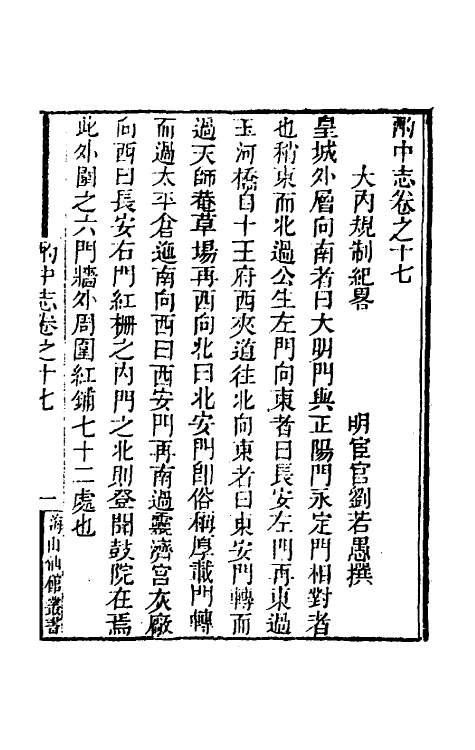 酌中志卷之十七
大內規制紀畧　明宦官劉若愚撰
皇城外層向南者曰大明門與正陽門永定門相對者
也稍東而北過公生左門向東者曰長安左門再東過
玉河橋自十王府西夾道往北向東者曰東安門轉而
過天師菴草場再西向北曰北安門卽俗稱厚載門轉
而過太平倉迤南向西曰西安門再南過靈濟宮灰廠
向西曰長安右門紅柵之內門之北則登聞鼓院在焉
此外圍之六門牆外周圍紅鋪七十二處也
酌中志卷之十七　一　海山仙館叢書